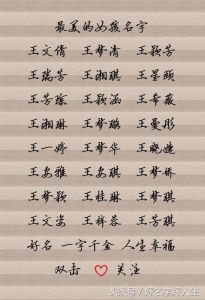 最美的女孩名字
王文倩 王梦清 王颖芳
王瑞芳 王湘琪 王昱颐
王芳琼 王颖涵 王希薇
王湘琳 王梦璐 王曼彤
王一婷 王梦华 王晓婕
王安雅 王安琪 王梦娇
王梦颖 王桂琳 王梦琪
王文姿 王梓蓉 王芳琪
好名 一字千金 人生幸福
双击 关注
头条号/好名字好人生